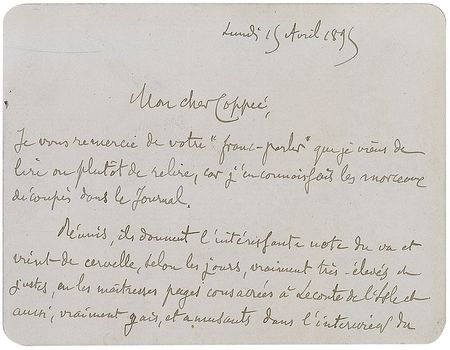 Lundi 15 Avril 1895
Mon cher Coppée,
Je vous remercie de votre "franc-parler" que je viens de
lire ou plutôt de relire, car j'en connaissais les morceaux
découpés dans le Journal.
Réunis, ils donnent l'intéressante note du va et
vient de cervelle, selon les jours, vraiment très-élevés et
justes, en les maîtresses pages consacrées à Leconte de l'Isle et
aussi, vraiment gais, et amusants dans l'interview du